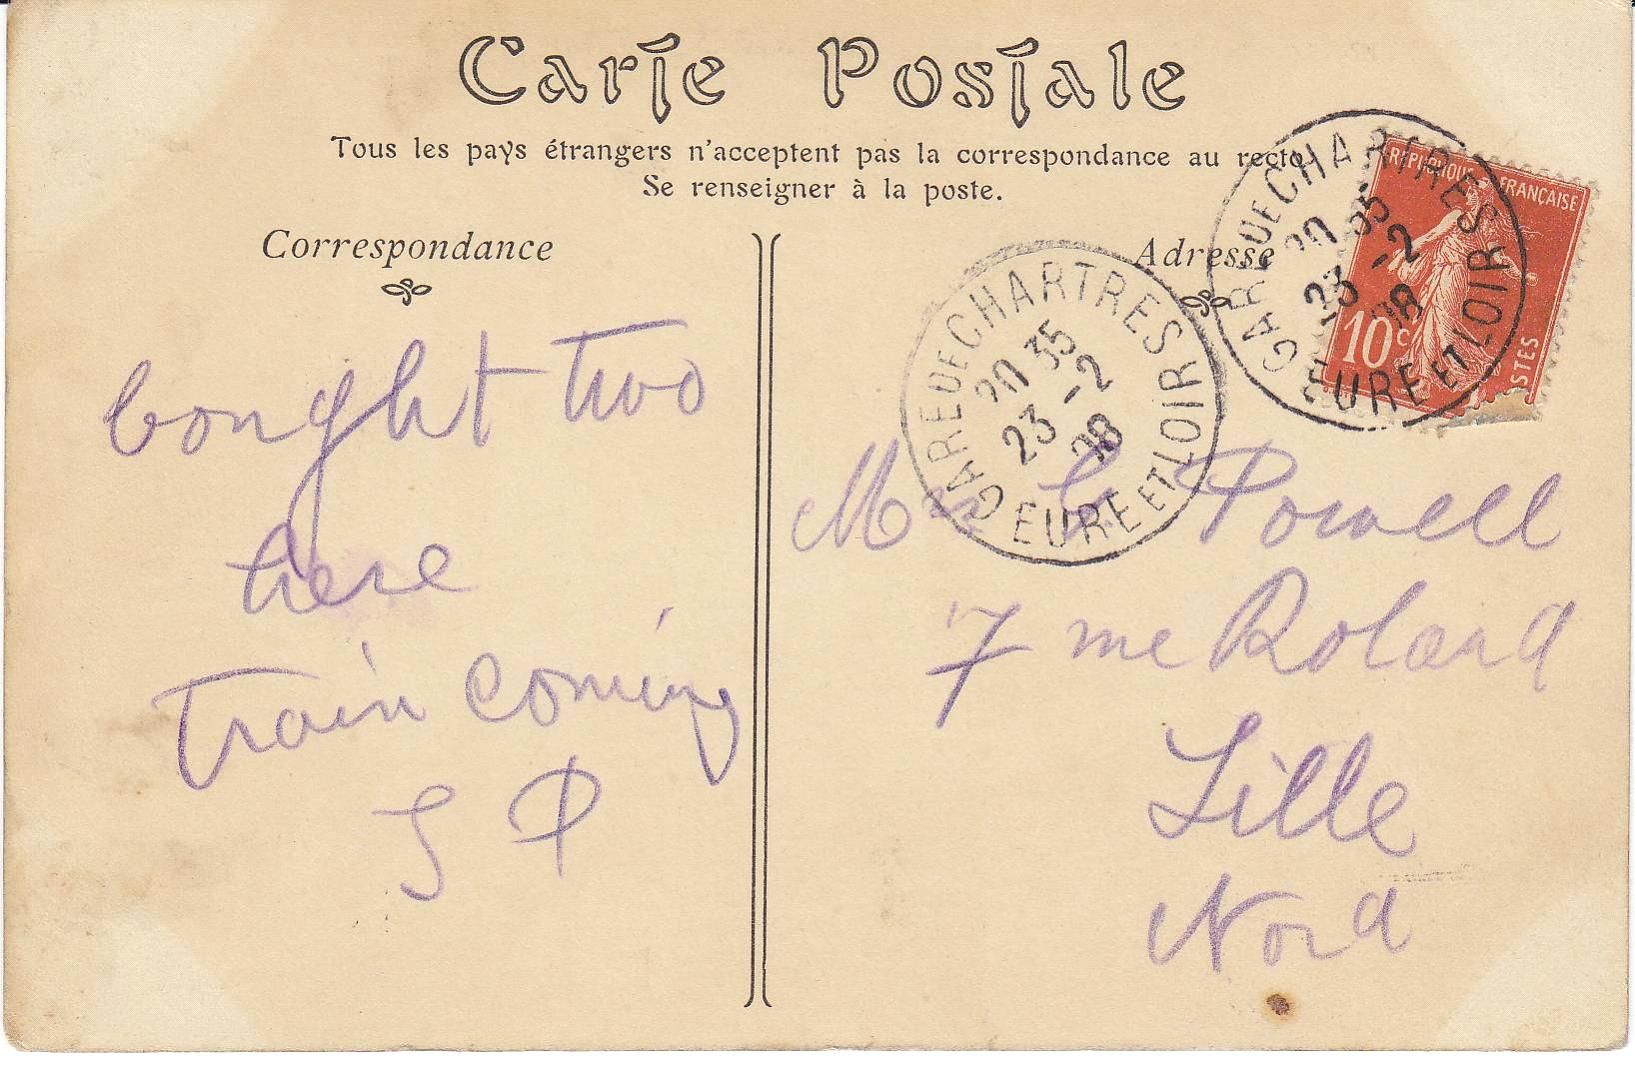 Carte Postale
Tous les pays étrangers n'acceptent pas la correspondance au recto
Se renseigner à la poste.
Correspondance
bought two
here
train coming
S P
Adresse
GARE DE CHARTRES
20 35
23 -2
08
EURE ET LOIR
GARE DE CHARTRES
20 35
23 -2
08
EURE ET LOIR
REPUBLIQUE FRANÇAISE
10c
POSTES
Powell
7 rue Roland
Lille
Nord